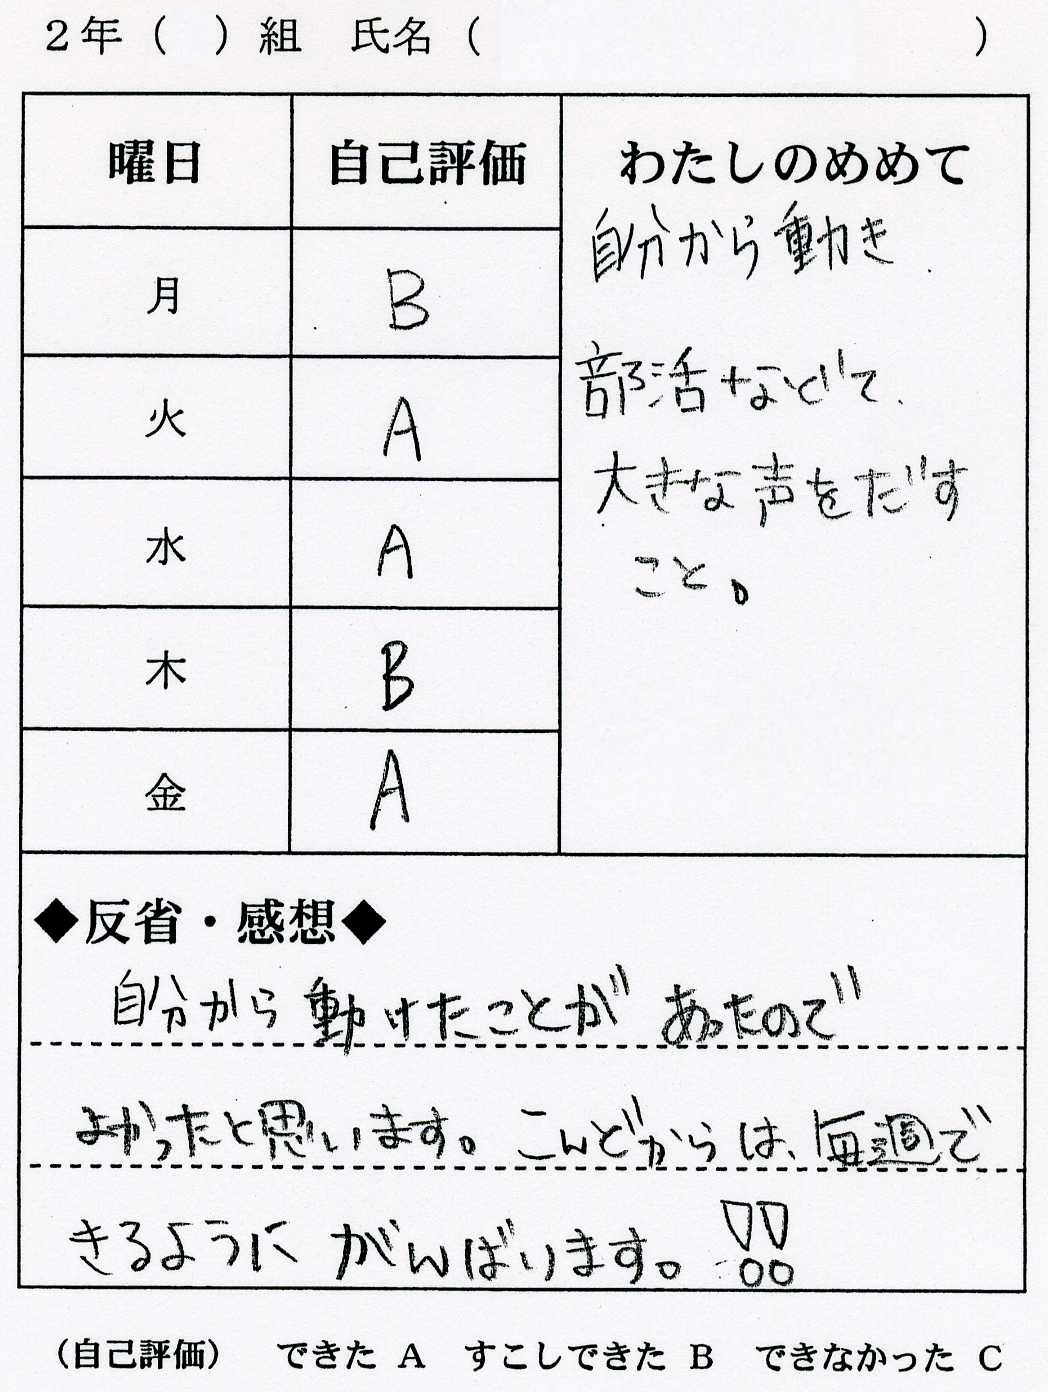 2年（　）組　氏名（　　　　　　）
曜日　自己評価　わたしのめめて
自分から動き
月　B
部活などで、
火　A
大きな声をだす
水　A
こと。
木　B
金　A
◆反省・感想◆
自分から動けたことがあったので
よかったと思います。こんどからは、毎週で
きるようにがんばります。!!
（自己評価）　できた A　すこしできた B　できなかった C